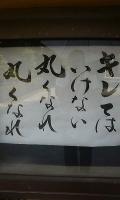 キレては
いけない
丸くなれ
丸くなれ